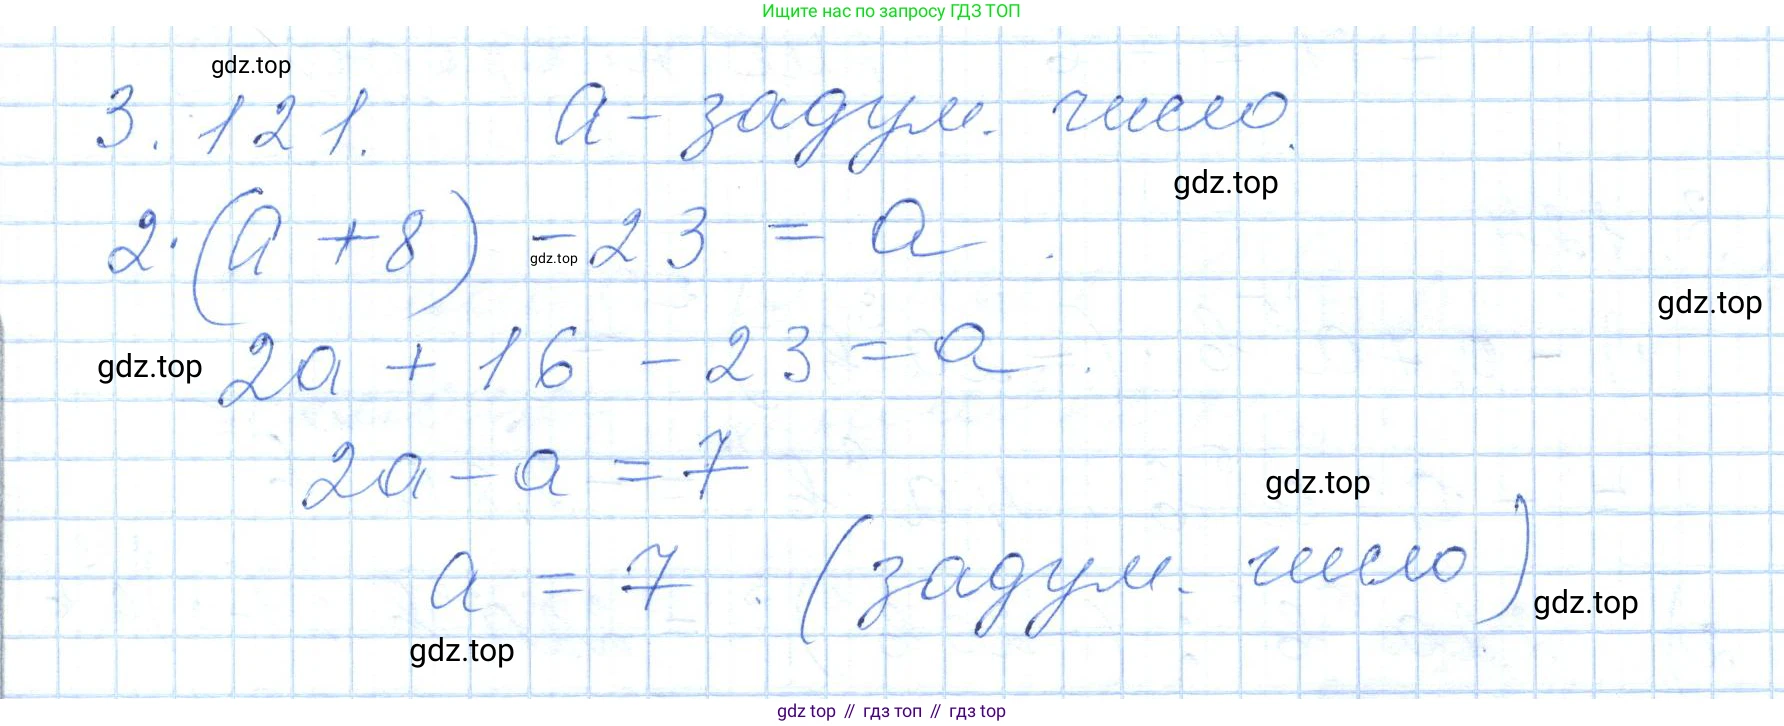 Ищите нас по запросу ГДЗ ТОП
gdz.top
3.121. a - задум. число.
gdz.top
2·(a + 8) - 23 = a.
gdz.top
gdz.top
2a + 16 - 23 = a.
gdz.top
2a - a = 7
gdz.top
a = 7. (задум. число)
gdz.top
gdz.top
gdz top // гдз топ // гдз top